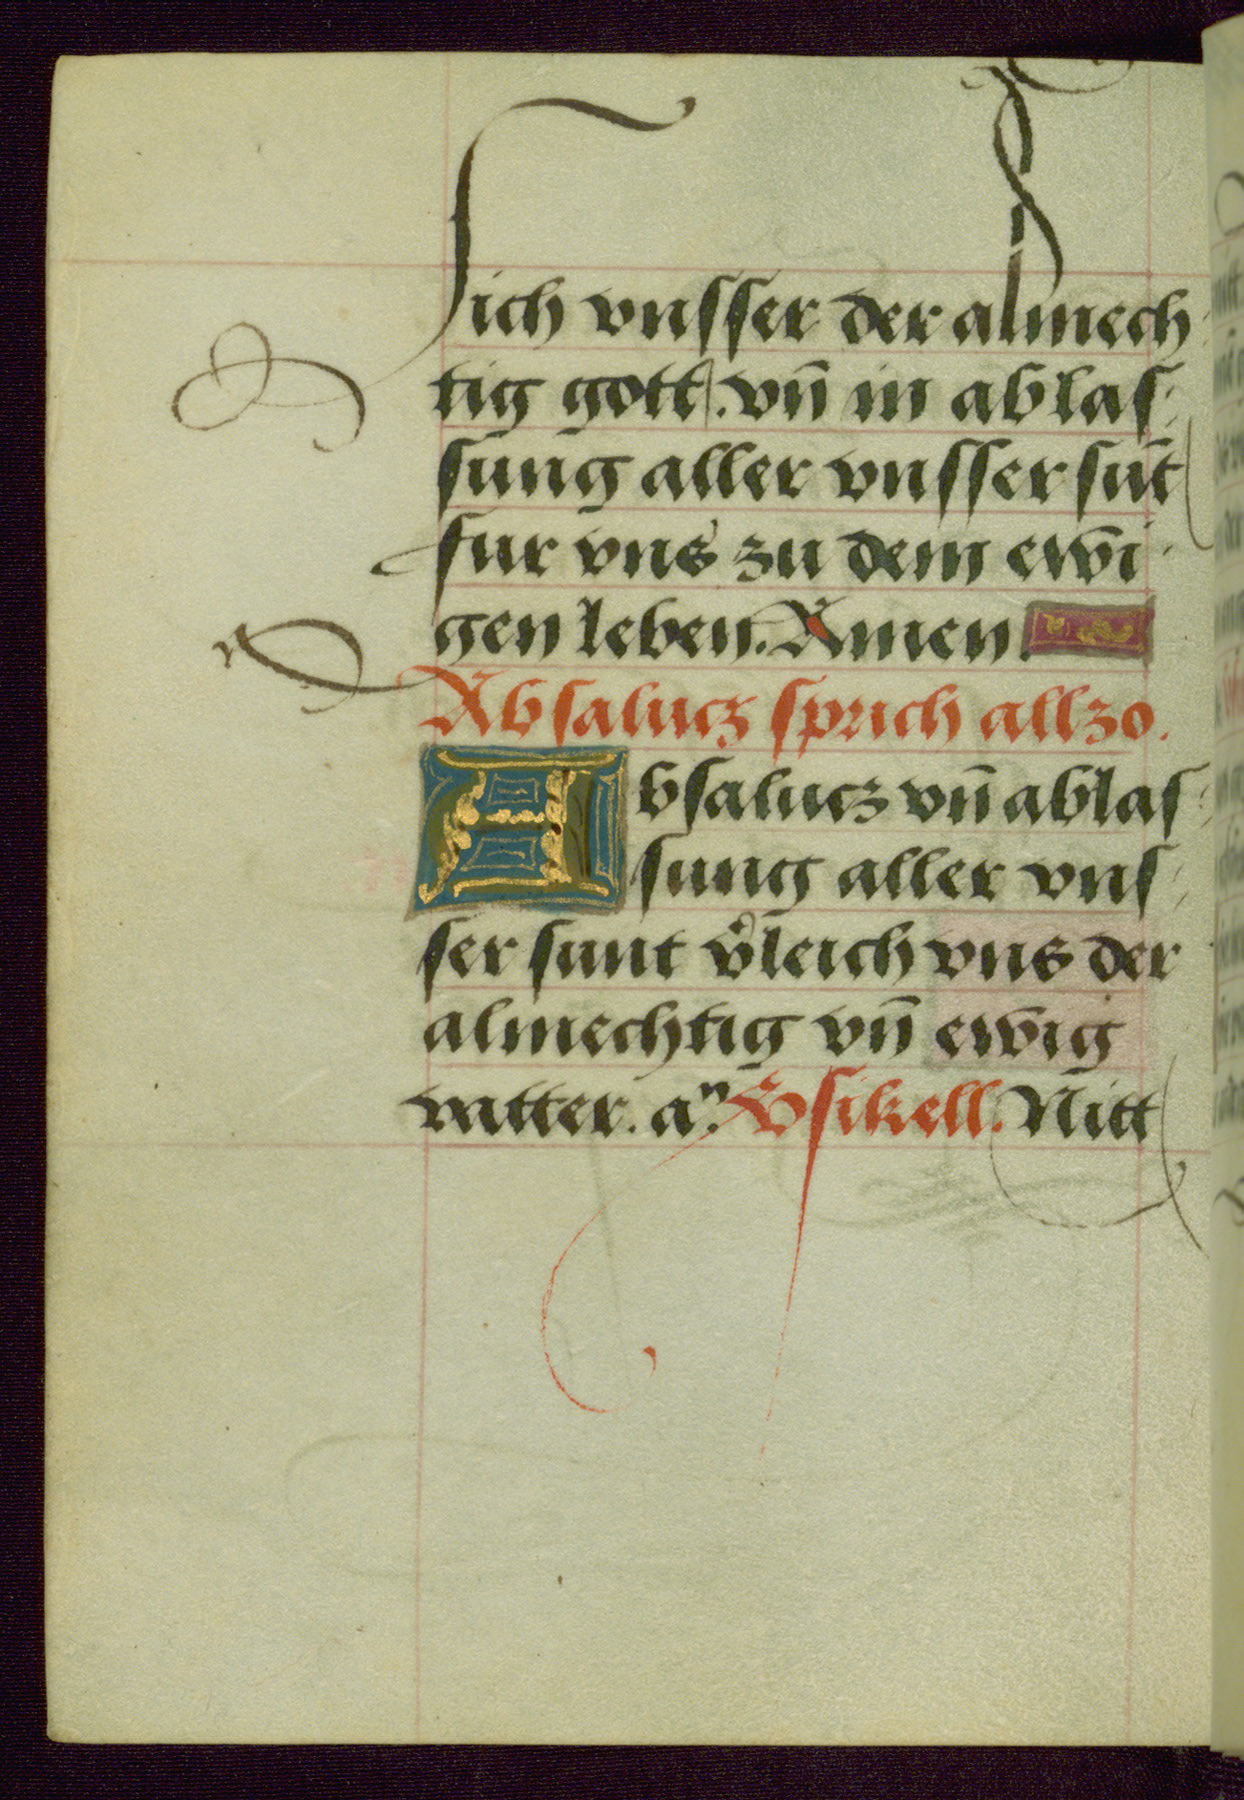 Sich vnsser der almech
tig gott. vn̄ in ablas
sung aller vnsser sūt
fur vns zu dem ewi
gen leben. Amen.
Absalucz sprich allzo.
Absalucz vn̄ ablas
sung aller vns
ser sunt v̉leich vns der
almechtig vn̄ ewig
vatter. aⁿ. V̉sikell. Nitt